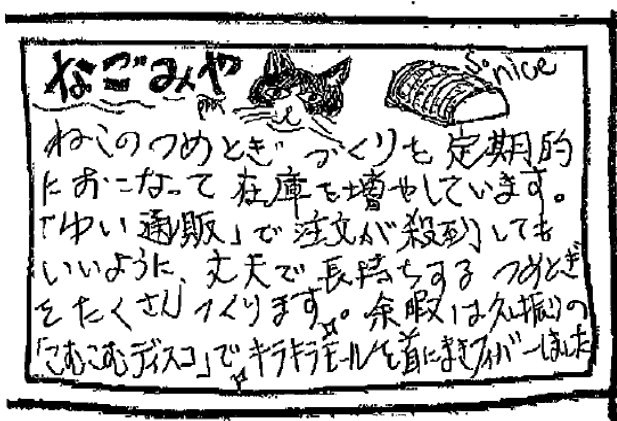 なごみや
so nice
ねこのつめとぎづくりを定期的
におこなって在庫を増やしています。
「ゆい通販」で注文が殺到しても
いいように、丈夫で長持ちするつめとぎ
をたくさんつくります。余暇は久し振りの
「こむこむディスコ」でキラキラモールを首にまきフィバーしました